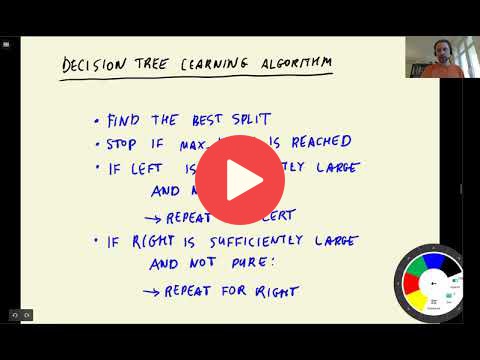 DECISION TREE LEARNING ALGORITHM
• FIND THE BEST SPLIT
• STOP IF MAX IS REACHED
• IF LEFT IS LARGE
AND
→ REPEAT
• IF RIGHT IS SUFFICIENTLY LARGE
AND NOT PURE:
→ REPEAT FOR RIGHT